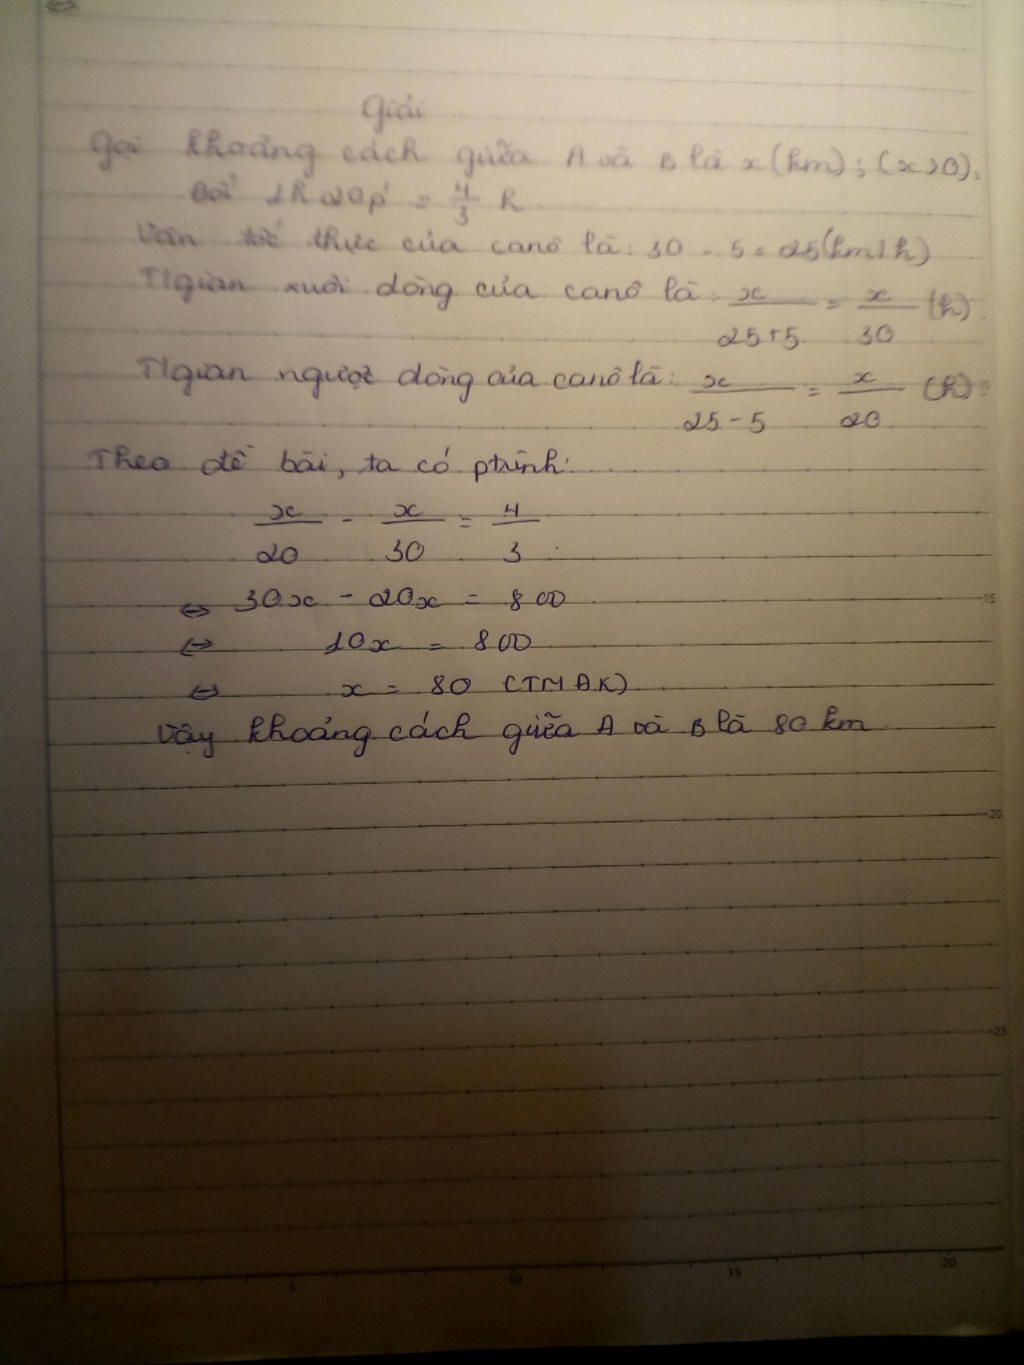 Giải
Gọi khoảng cách giữa A và B là x(km); (x>0).
Đổi 1h20p' = 4/3 h
Vận tốc thực của canô là: 30 - 5 = 25(km/h)
Tgian xuôi dòng của canô là: x/(25+5) = x/30 (h).
Tgian ngược dòng của canô là: x/(25-5) = x/20 (h)
Theo đề bài, ta có ptrình:
x/20 - x/30 = 4/3
⇔ 30x - 20x = 800
⇔ 10x = 800
⇔ x = 80 (TMĐK)
Vậy khoảng cách giữa A và B là 80 km
15
20
25
5 10 15 20